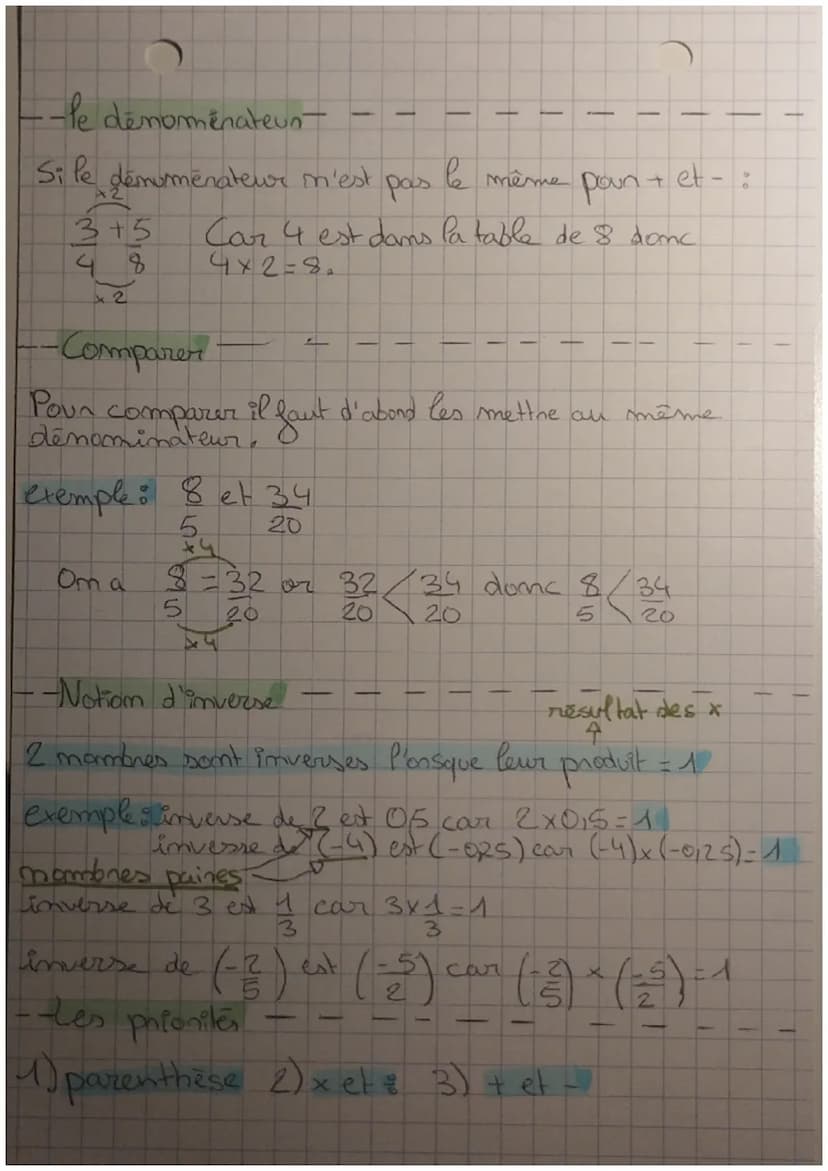 --le dénominateur- - - - - - - - - - - -
Si le dénominateur n'est pas le même pour + et - :
x2
3/4 + 5/8 Car 4 est dans la table de 8 donc
4 x 2 = 8.
x2
--Comparer - - - - - - - - - - -
Pour comparer il faut d'abord les mettre au même
dénominateur.
exemple: 8/5 et 34/20
x4
On a 8/5 = 32/20 or 32/20 < 34/20 donc 8/5 < 34/20
x4
--Notion d'inverse - - - - - - - - - - -
résultat des x
2 nombres sont inverses l'orsque leur produit = 1
exemple: inverse de 2 est 0,5 car 2 x 0,5 = 1
inverse de (-4) est (-0,25) car (-4) x (-0,25) = 1
nombres paires
inverse de 3 est 1/3 car 3 x 1/3 = 1
inverse de (-2/5) est (-5/2) car (-2/5) x (-5/2) = 1
--Les priorités - - - - - - - - - - -
1) parenthèse 2) x et : 3) + et -